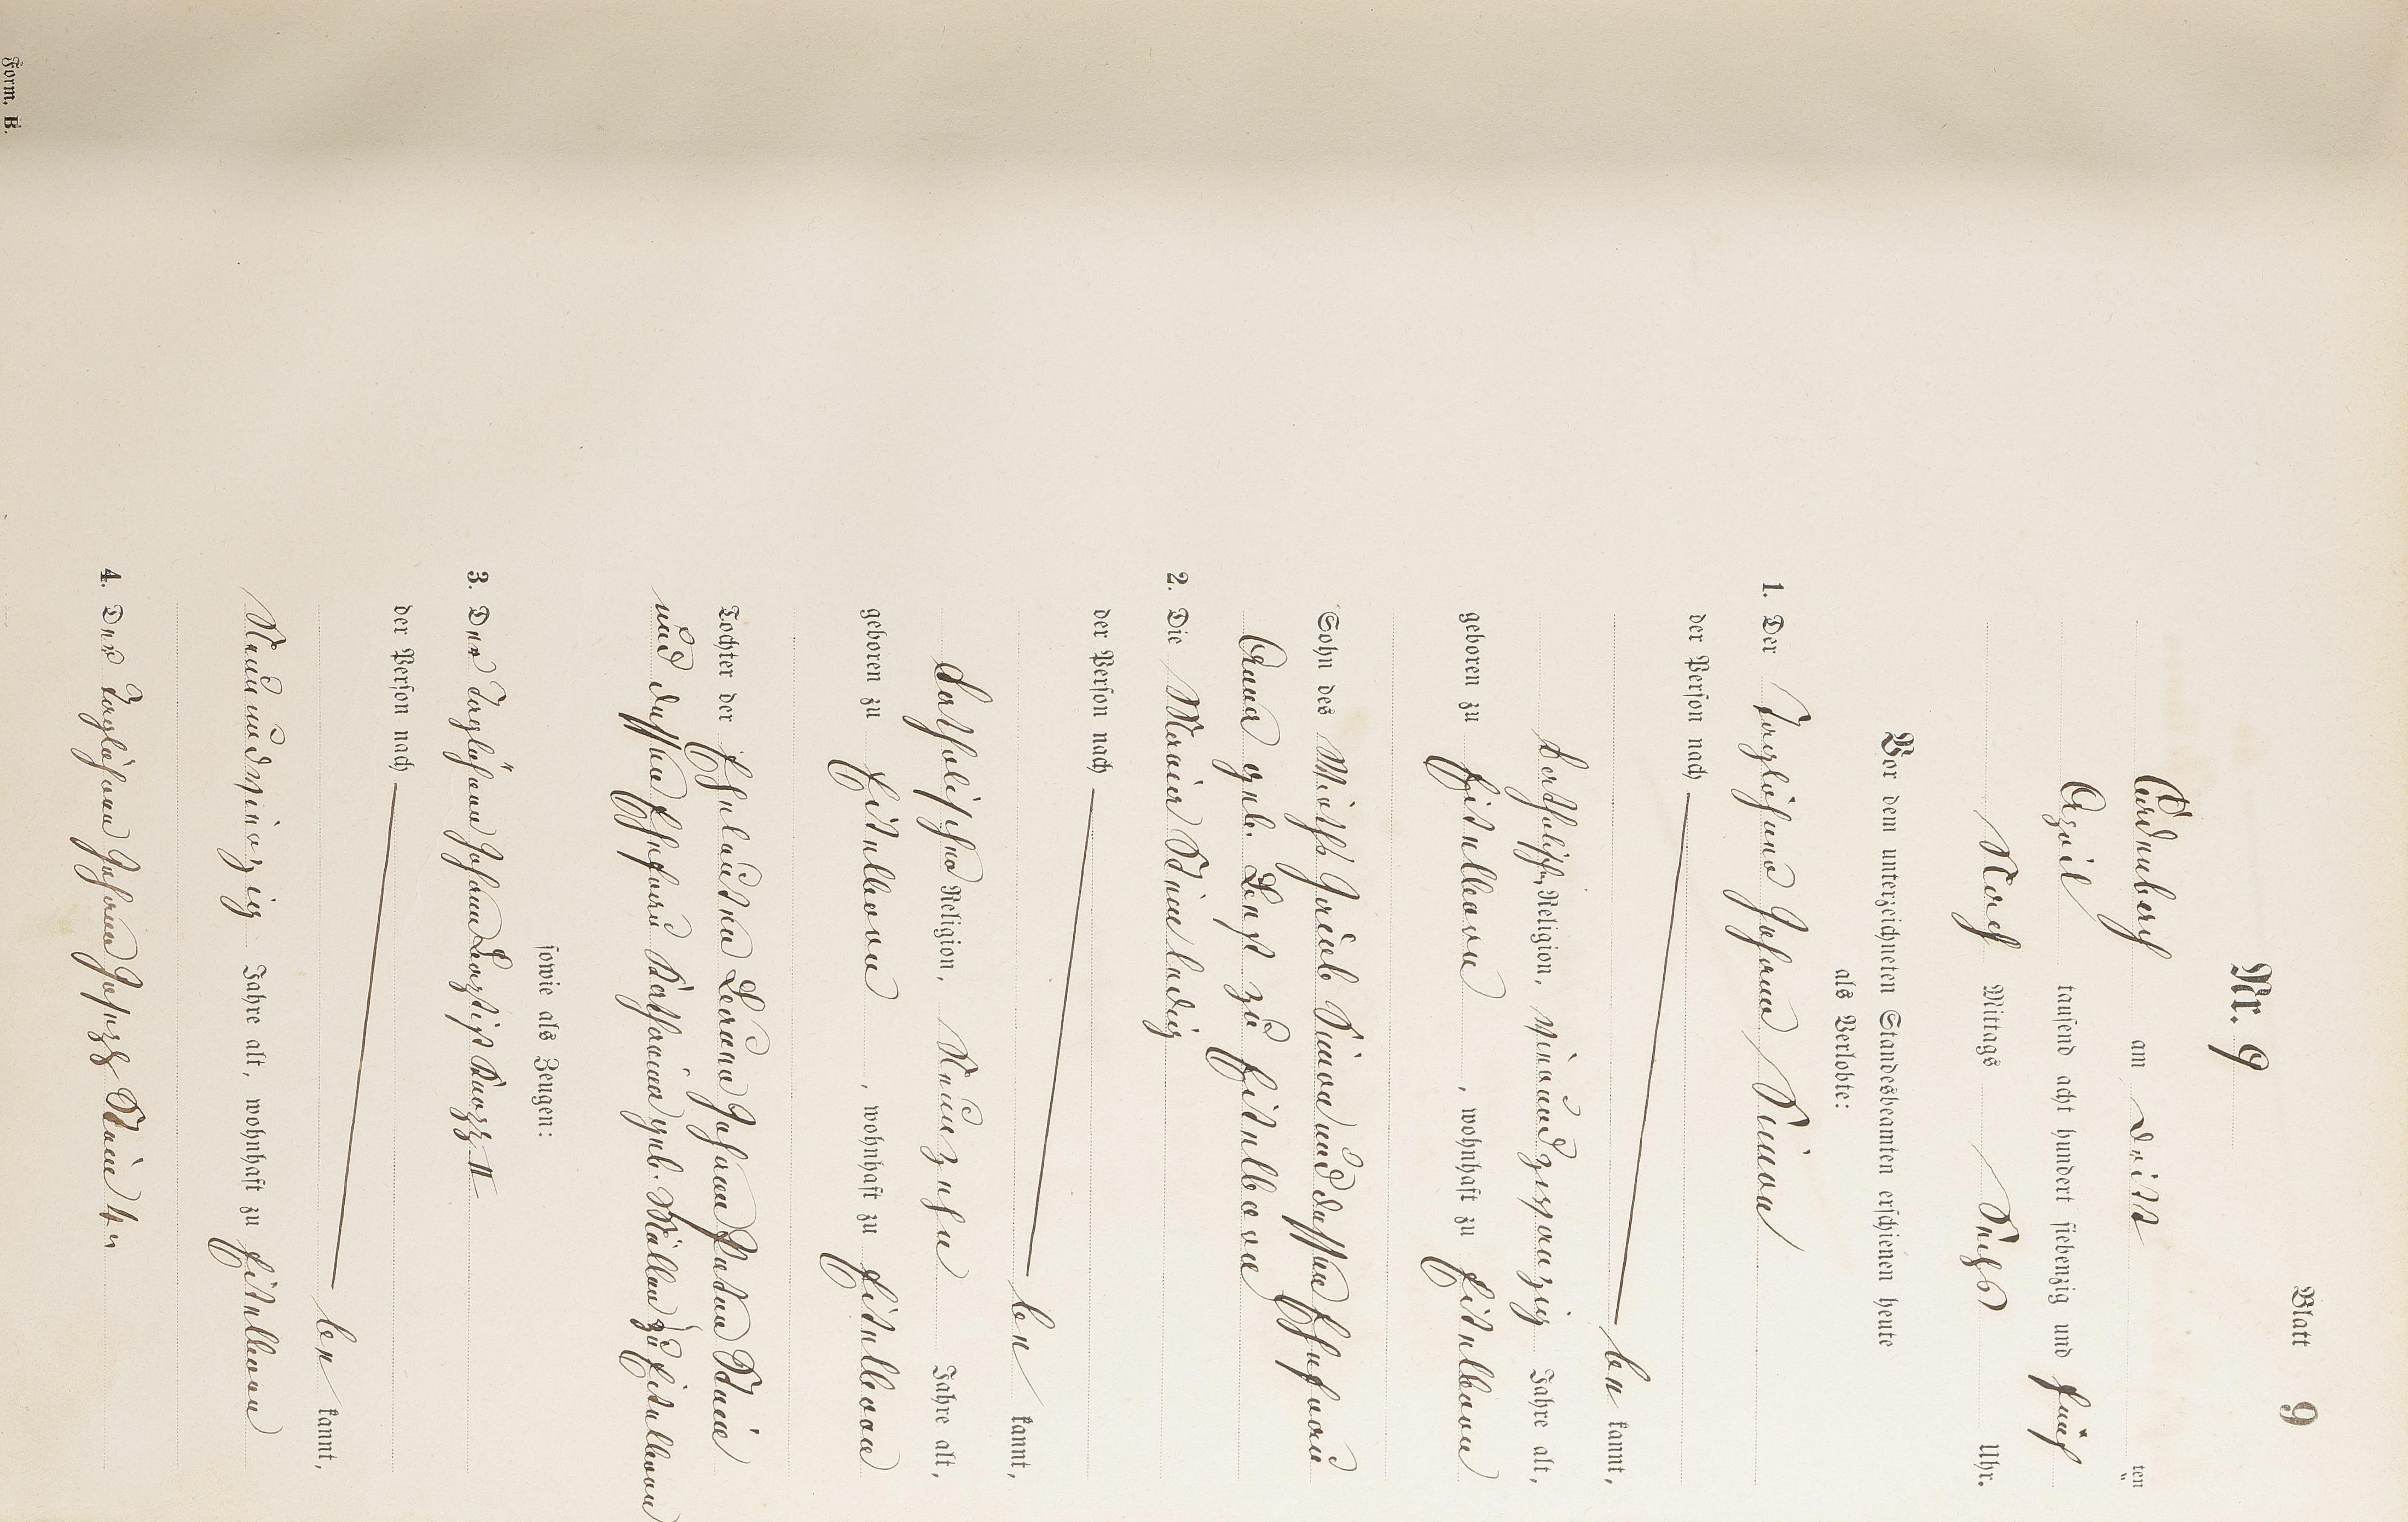 Blatt 9
Nr. 9
am dritt ten
April tausend acht hundert siebenzig und fünf
Nach Mittags Sechs Uhr.
Vor dem unterzeichneten Standesbeamten erschienen heute
als Verlobte:
1. Der Taglöhner Johann Simon
der Person nach
be kannt,
katholischer Religion, vierundzwanzig Jahre alt,
geboren zu Eitelborn, wohnhaft zu Eitelborn
Sohn des Wirths Jacob Simon und dessen Ehefrau
Anna geb. zu Eitelborn
2. Die Maria ledig
der Person nach
be kannt,
katholischer Religion, Neunzehn Jahre alt,
geboren zu Eitelborn, wohnhaft zu Eitelborn
Tochter der Eheleute Johann Peter
und dessen Ehefrau Katharina geb. Müller zu Eitelborn
sowie als Zeugen:
3. Der Taglöhner Johann II
der Person nach
be kannt,
Neunundvierzig Jahre alt, wohnhaft zu Eitelborn
4. Der Taglöhner Johann Joseph
Form. B.